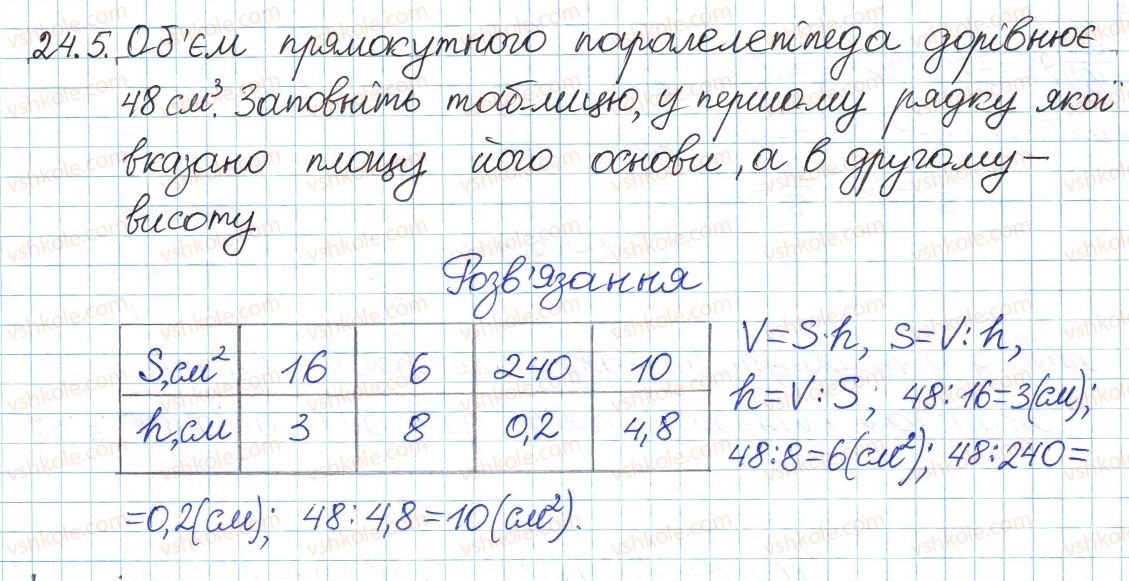 24.5. Об'єм прямокутного паралелепіпеда дорівнює
48 см³. Заповніть таблицю, у першому рядку якої
вказано площу його основи, а в другому –
висоту
Розв'язання
S, см² 16 6 240 10
h, см 3 8 0,2 4,8
V=S·h, S=V:h,
h=V:S; 48:16=3(см);
48:8=6(см²); 48:240=
=0,2(см); 48:4,8=10(см²).